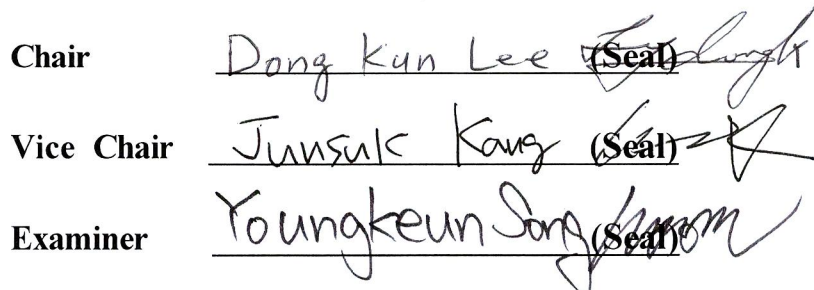 Chair Dong Kun Lee (Seal)
Vice Chair Junsuk Kang (Seal)
Examiner Youngkeun Song (Seal)